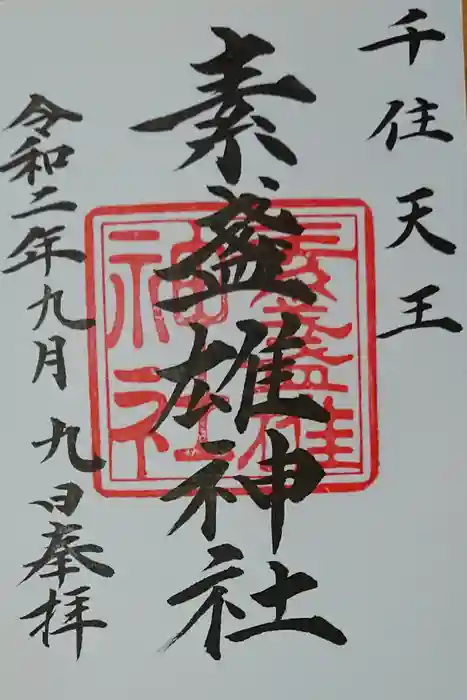 千住天王
素盞雄神社
素盞雄神社
令和二年九月九日奉拝